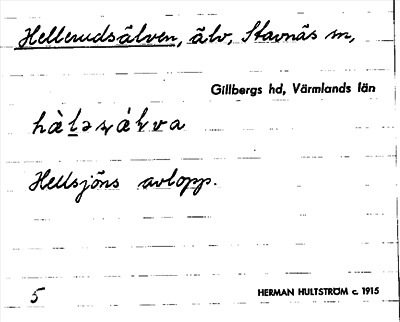 Hellerudsälven, älv, Stavnäs sn,
Gillbergs hd, Värmlands län
Hellsjöns avlopp.
5
HERMAN HULTSTRÖM c. 1915